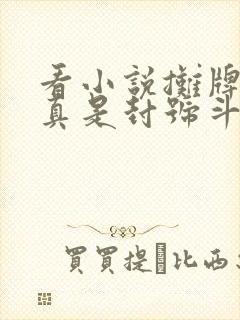 看小説攤牌
真是封號斗
買買提·比西